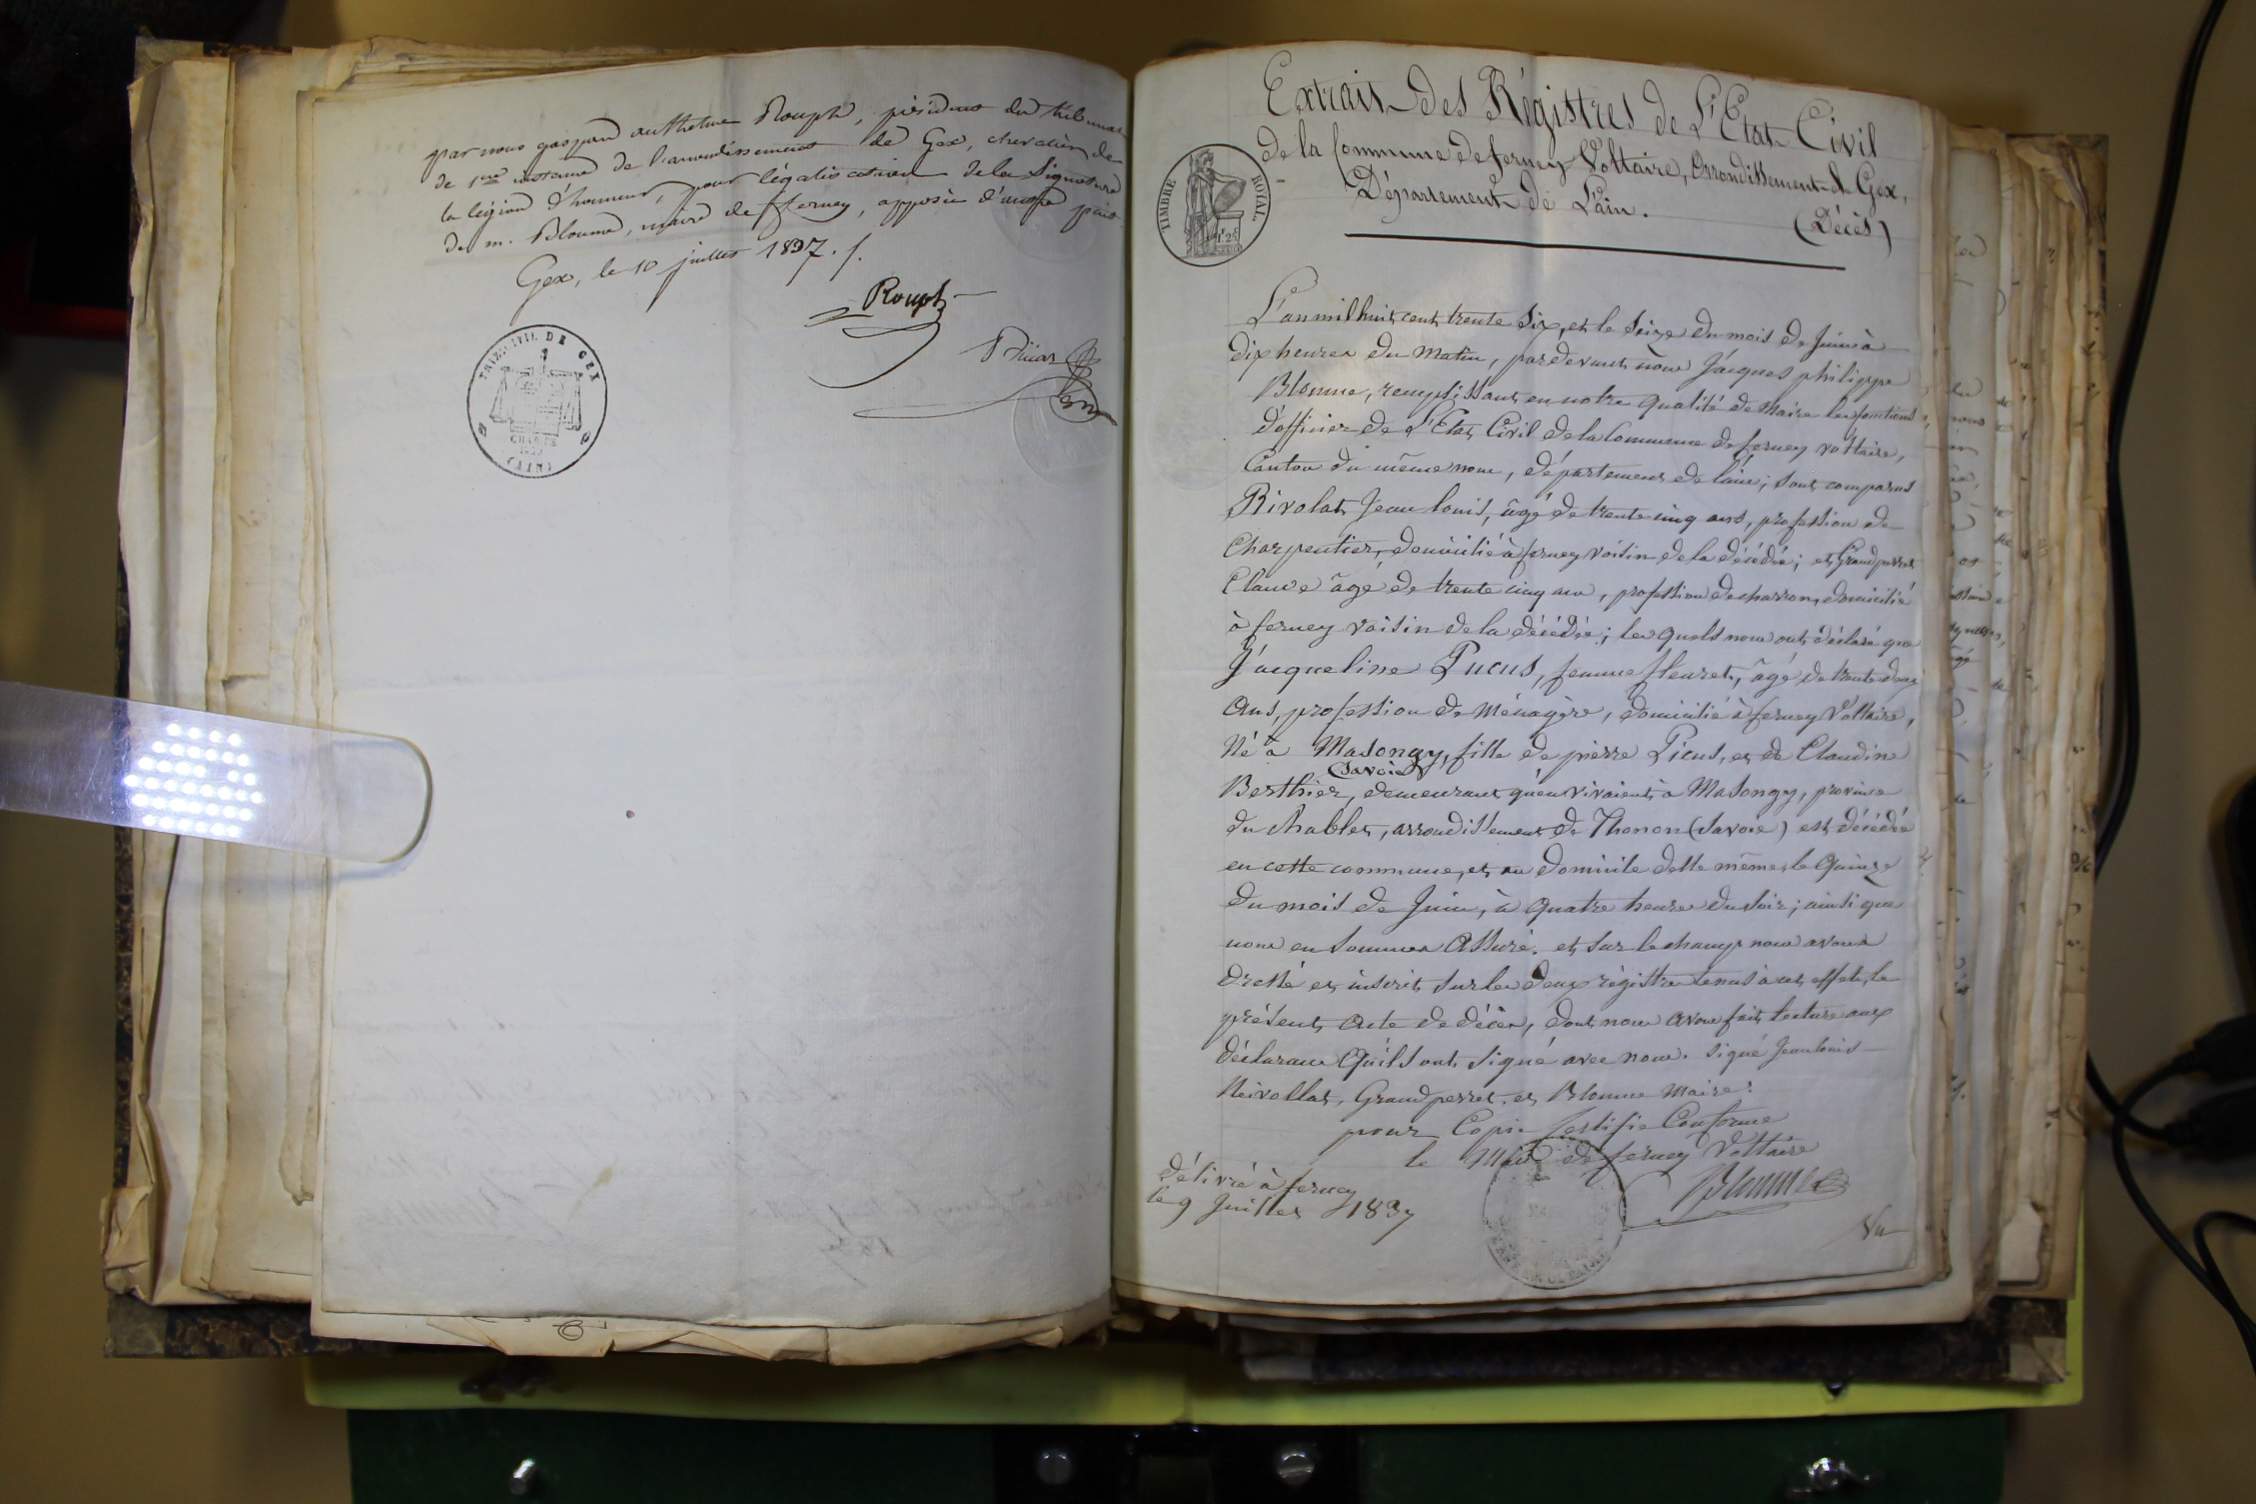 par nous gaspard anthelme Rouph, président du tribunal
de 1ere instance de l'arrondissement de Gex, chevalier de
la légion d'honneur, pour légalisation de la signature
de m. Blonme, maire de ferney, apposée d'autre part.
Gex, le 10 juillet 1837. /.
Rouph
DE GEX
CHARTE
(AIN)
Extrait des Régistres de L'Etat Civil
de la Commune de ferney Voltaire, Arrondissement de Gex,
Département de L'ain.
(Décès)
TIMBRE ROYAL
1f 25
L'an mil huit cent trente six, et le seize du mois de Juin à
dix heures du matin, pardevant nous Jacques philippe
Blonme, remplissant en notre qualité de Maire les fonctions
d'officier de L'Etat Civil de la Commune de ferney voltaire,
Canton du même nom, département de l'ain; sont comparus
Rivolat Jean louis, âgé de trente cinq ans, profession de
Charpentier, domicilié à ferney voisin de la décédée; et Grandperret
Claude âgé de trente cinq ans, profession de charron, domicilié
à ferney voisin de la décédée; les quels nous ont déclaré que
Jacqueline Picus, femme fleuret, âgé de trente deux
Ans, profession de Ménagère, domicilié à ferney Voltaire,
Né à Masongy, fille de pierre Picus, et de Claudine
(Savoie)
Berthier, demeurant quen vivaient à Masongy, province
du chablet, arrondissement de Thonon (Savoie) est décédée
en cette commune, et au domicile delle même, le Quinze
du mois de Juin, à quatre heures du soir; ainsi que
nous en sommes Assuré. et sur le champ nous avons
dressé et inscrit sur les deux régistre tenus à cet effet, le
présent acte de décès, dont nous avons fait lecture aux
déclarans Qu'ils ont signé avec nous. signé Jean louis
Reivollat, Grandperret, et Blonme Maire:
pour Copie Certifie Conforme
le Maire de ferney Voltaire
Blonme
délivré à ferney
le 9 Juillet 1837
Vu